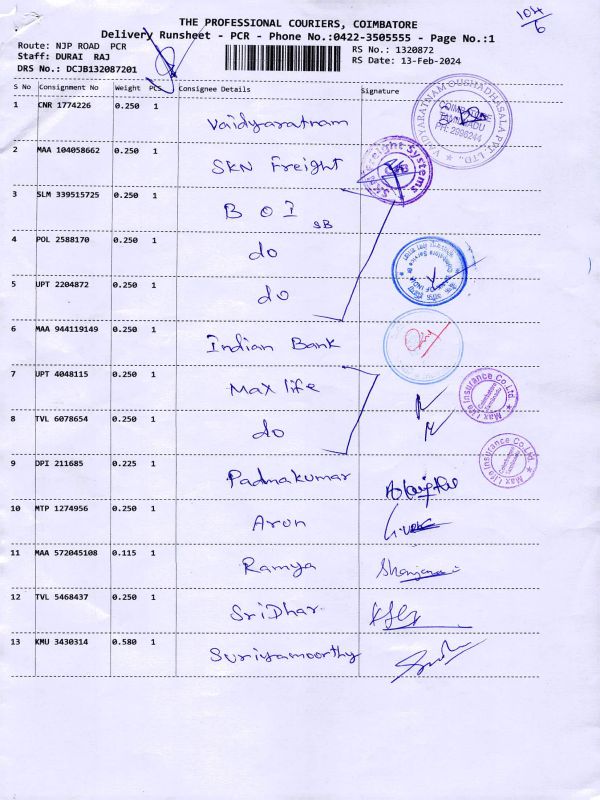 104/6
THE PROFESSIONAL COURIERS, COIMBATORE
Delivery Runsheet - PCR - Phone No.:0422-3505555 - Page No.:1
Route: NJP ROAD PCR
RS No.: 1320872
Staff: DURAI RAJ
RS Date: 13-Feb-2024
DRS No.: DCJB132087201
S No Consignment No Weight PCS Consignee Details Signature
1 CNR 1774226 0.250 1 Vaidyaratnam
VAIDYARATNAM OUSHADHASALA PVT. LTD. COIMBATORE TAMILNADU
2 MAA 104058662 0.250 1 SKN Freight
Freight Systems
3 SLM 339515725 0.250 1 B O I SB
4 POL 2588170 0.250 1 do
5 UPT 2204872 0.250 1 do
6 MAA 944119149 0.250 1 Indian Bank
7 UPT 4048115 0.250 1 Max life
Max Life Insurance Co Ltd
8 TVL 6078654 0.250 1 do
Max Life Insurance Co Ltd
9 DPI 211685 0.225 1 Padmakumar
10 MTP 1274956 0.250 1 Arun
11 MAA 572045108 0.115 1 Ramya
12 TVL 5468437 0.250 1 SriDhar
13 KMU 3430314 0.580 1 Suriyamoorthy